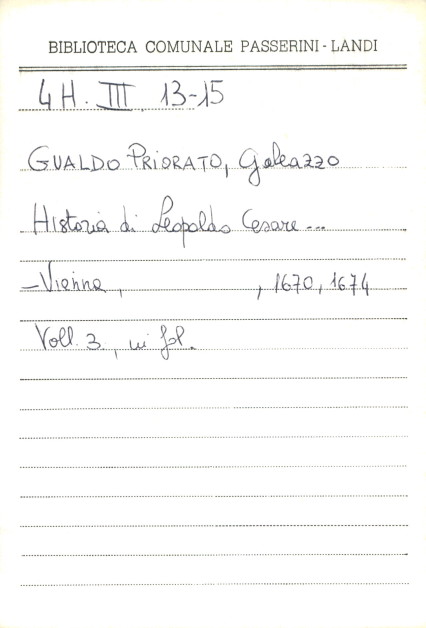 BIBLIOTECA COMUNALE PASSERINI-LANDI
4H. III 13-15
GUALDO PRIORATO, Galeazzo
Historia di Leopoldo Cesare...
-Vienna, , 1670, 1674
Voll. 3, in fol.